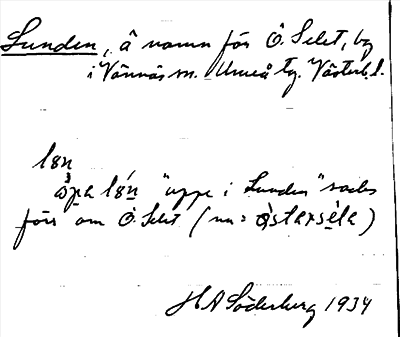 Lunden, å namn för Ö. Selet, by
i Vännäs sn. Umeå tg. Västerb. l.
løn
løn "uppe i Lunden" sades
förr om Ö. Selet (nu: östersela)
H A Söderberg 1934